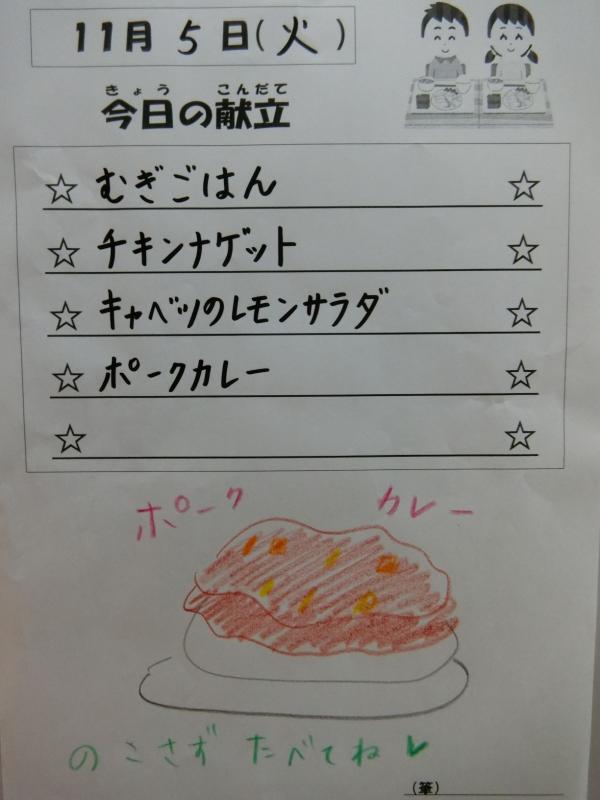 11月 5 日(火)
きょう こんだて
今日の献立
☆ むぎごはん ☆
☆ チキンナゲット ☆
☆ キャベツのレモンサラダ ☆
☆ ポークカレー ☆
☆ ☆
ポーク カレー
のこさず たべてね
(筆)